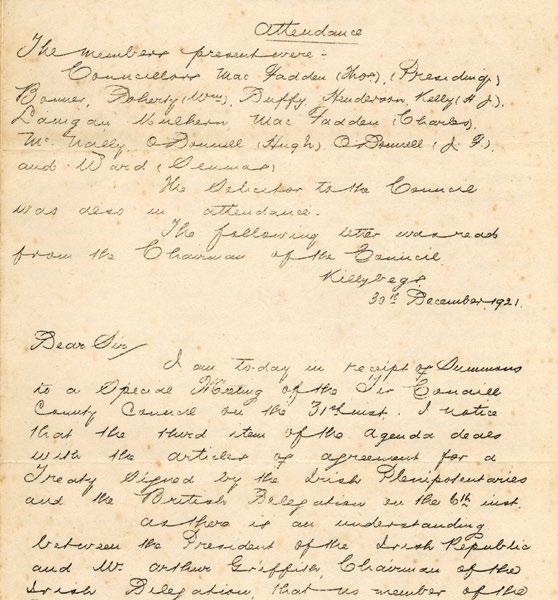 Attendance
The members present were:-
Councillors Mac Fadden (Thos), (Presiding)
Bonner, Doherty (Wm), Duffy, Henderson, Kelly (H J),
Langan Mulhern Mac Fadden (Charles),
Mc Nally, O Donnell (Hugh), O Donnell (J. F),
and Ward (Seumas)
The Solicitor to the Council
was also in attendance.
The following letter was read
from the Chairman of the Council.
Killybegs.
30th December, 1921.
Dear Sir/
I am to-day in receipt of Summons
to a Special Meeting of the Tir Conaill
County Council on the 31st inst. I notice
that the third item of the Agenda deals
with the articles of agreement for a
Treaty signed by the Irish Plenipotentaries
and the British Delegation on the 6th inst.
as there is an understanding
between the President of the Irish Republic
and Mr. Arthur Griffith, Chairman of the
Irish Delegation, that no member of the